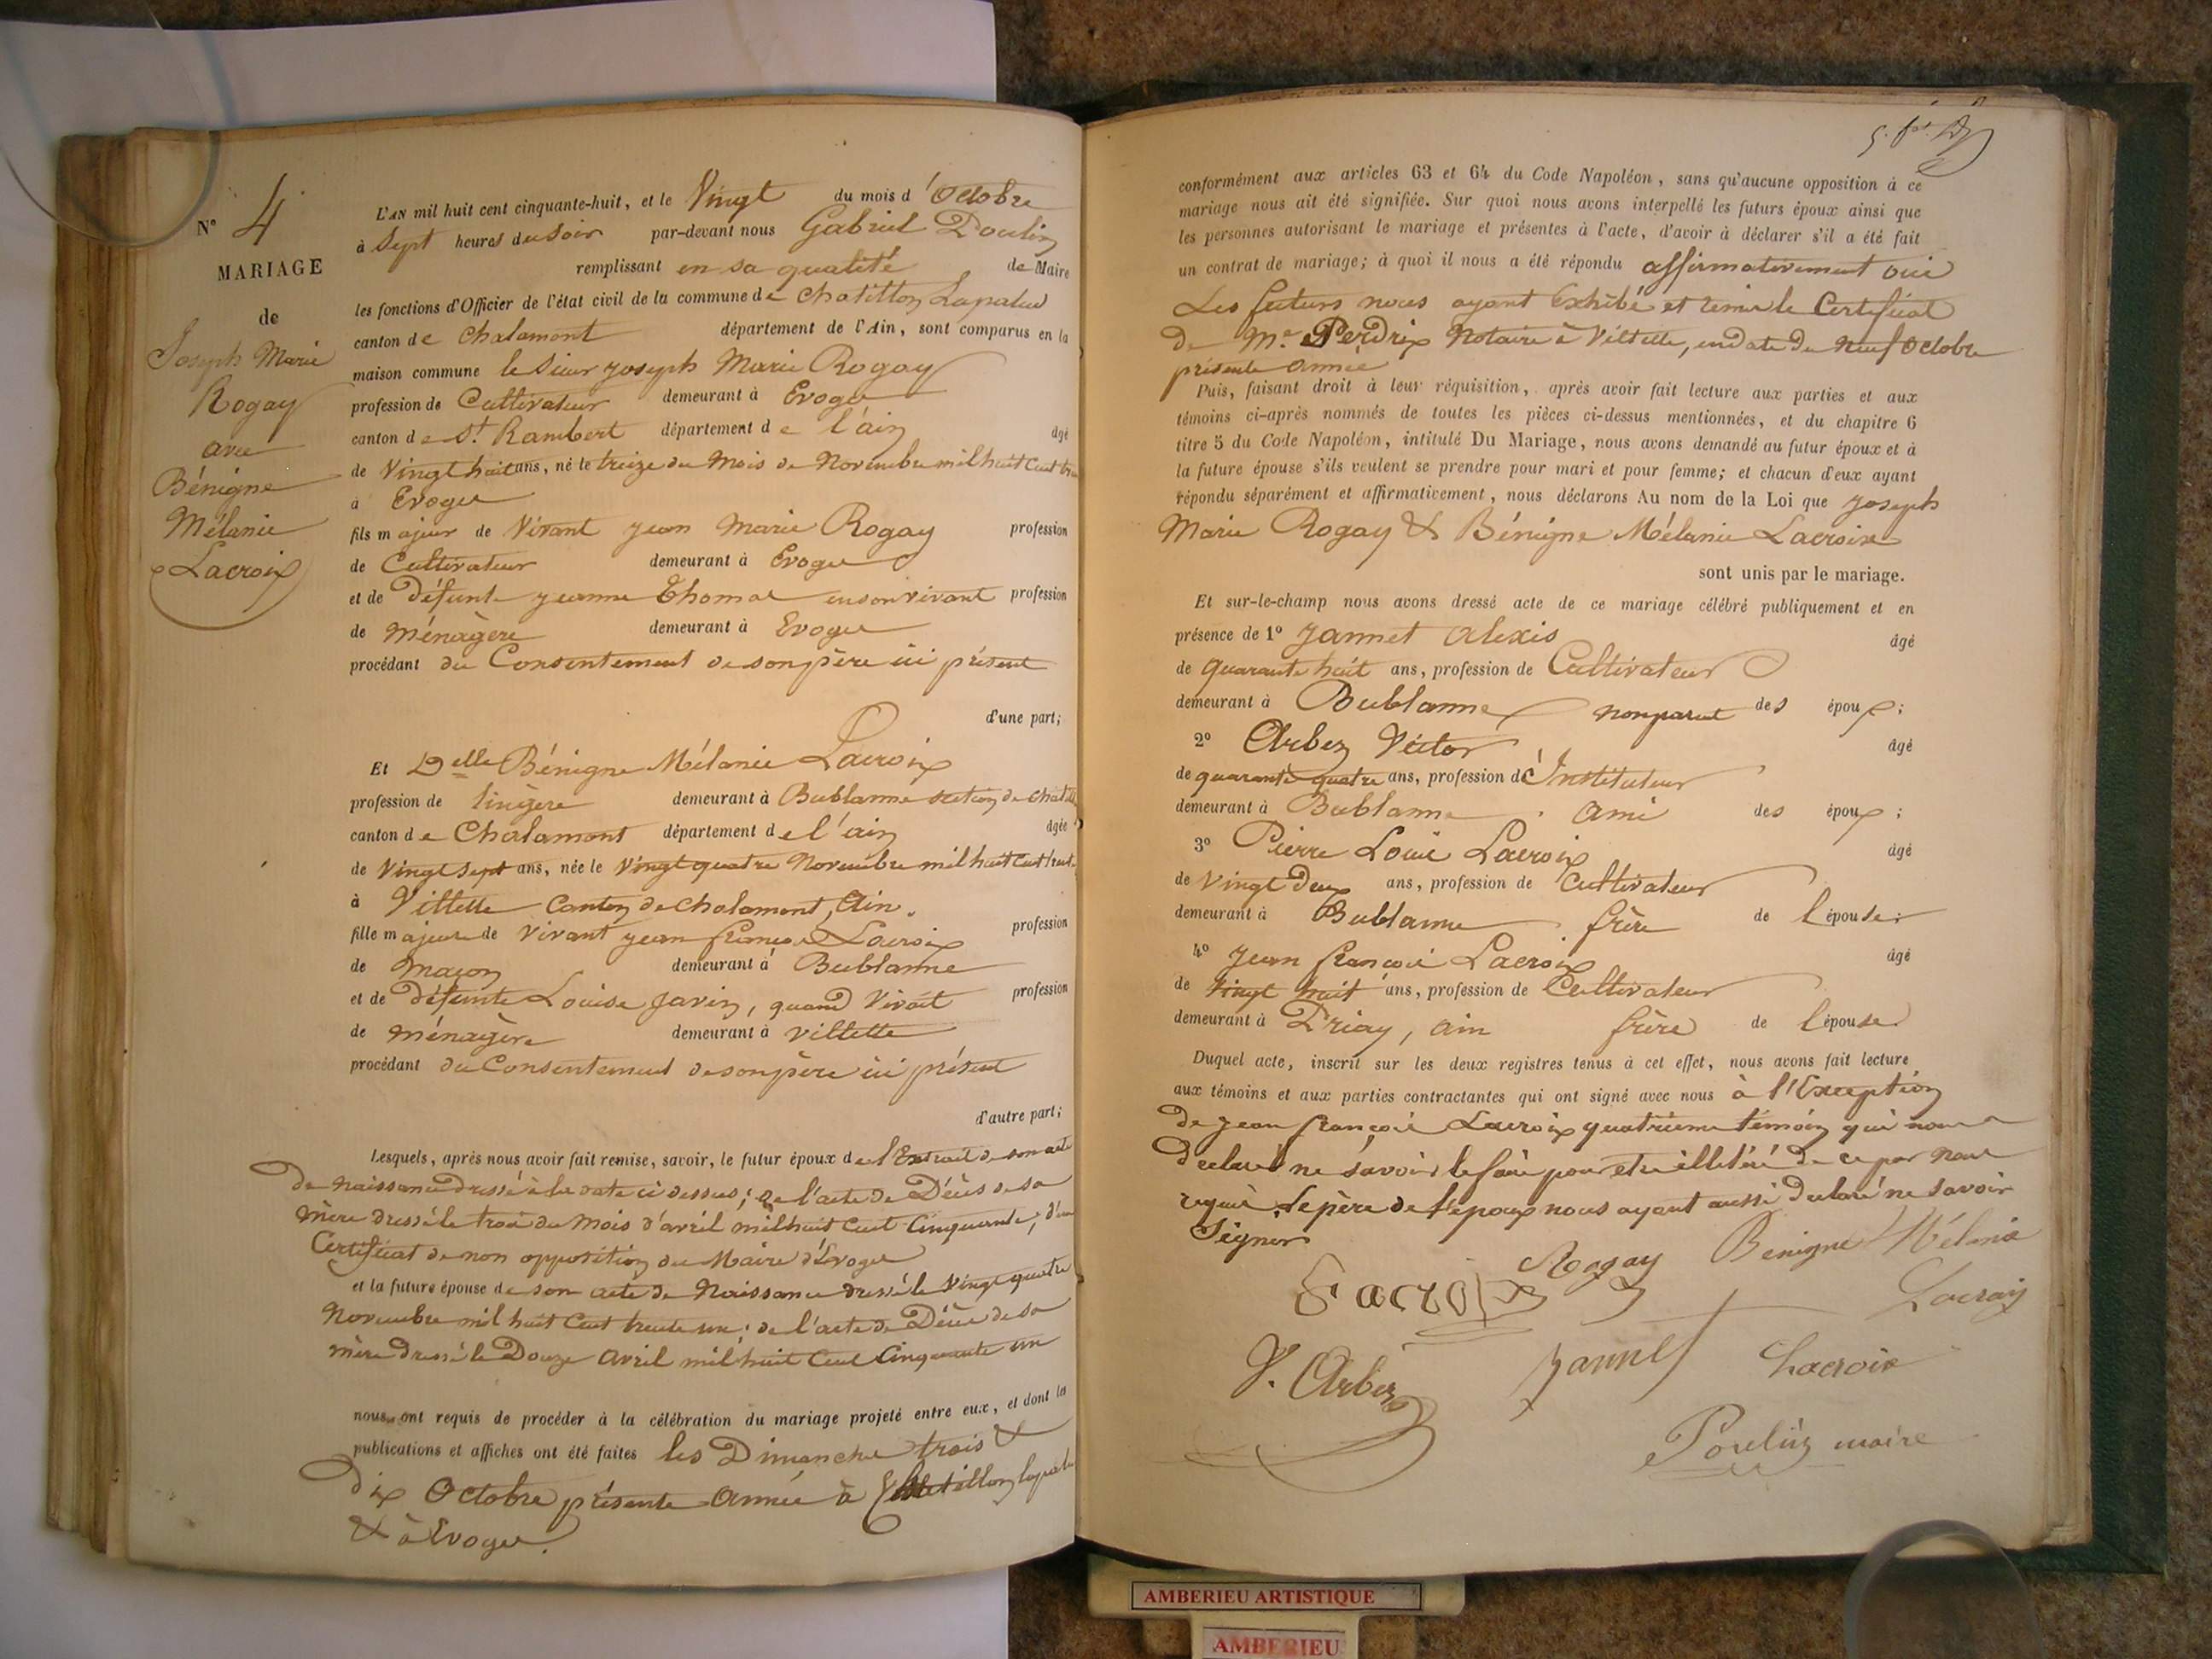 N° 4
MARIAGE
de
Joseph Marie
Rogay
avec
Bénigne
Mélanie
Lacroix
L'AN mil huit cent cinquante-huit, et le Vingt du mois d'Octobre
à Sept heures du Soir par-devant nous Gabriel Poulin
remplissant en sa qualité de Maire
les fonctions d'Officier de l'état civil de la commune de Chatillon Lapalud
canton de Chalamont département de l'Ain, sont comparus en la
maison commune le Sieur Joseph Marie Rogay
profession de Cultivateur demeurant à Evoges
canton de St. Rambert département de l'ain âgé
de Vingt huit ans, né le treize du Mois de Novembre mil huit Cent
à Evoges
fils majeur de Vivant Jean Marie Rogay profession
de Cultivateur demeurant à Evoges
et de défunte Jeanne Thomas en son vivant profession
de Ménagère demeurant à Evoges
procédant du Consentement de son père ici présent
d'une part;
Et Delle Bénigne Mélanie Lacroix
profession de lingère demeurant à Bublanne section de
canton de Chalamont département de l'ain âgée
de Vingt sept ans, née le Vingt quatre Novembre mil huit Cent
à Villette Canton de Chalamont, Ain.
fille majeure de Vivant Jean françois Lacroix profession
de Maçon demeurant à Bublanne
et de défunte Louise Javin, quand Vivait profession
de Ménagère demeurant à Villette
procédant du Consentement de son père ici présent
d'autre part;
Lesquels, après nous avoir fait remise, savoir, le futur époux de l'Extrait de son acte
de Naissance dressé à la date ci dessus; de l'acte de Décès de sa
Mère dressé le trois du Mois d'avril mil huit Cent Cinquante; d'un
Certificat de non opposition du Maire d'Evoges
et la future épouse de son acte de Naissance dressé le Vingt quatre
Novembre mil huit Cent trente un; de l'acte de Décès de sa
mère dressé le Douze Avril mil huit Cent Cinquante un
nous ont requis de procéder à la célébration du mariage projeté entre eux, et dont les
publications et affiches ont été faites les Dimanche trois &
dix Octobre présente Année à Chatillon
& à Evoges.
conformément aux articles 63 et 64 du Code Napoléon, sans qu'aucune opposition à ce
mariage nous ait été signifiée. Sur quoi nous avons interpellé les futurs époux ainsi que
les personnes autorisant le mariage et présentes à l'acte, d'avoir à déclarer s'il a été fait
un contrat de mariage; à quoi il nous a été répondu affirmativement oui
Les futurs nous ayant Exhibé et remis le Certificat
de Me. Perdrix Notaire à Villette, en date du Neuf Octobre
présente année
Puis, faisant droit à leur réquisition, après avoir fait lecture aux parties et aux
témoins ci-après nommés de toutes les pièces ci-dessus mentionnées, et du chapitre 6
titre 5 du Code Napoléon, intitulé Du Mariage, nous avons demandé au futur époux et à
la future épouse s'ils veulent se prendre pour mari et pour femme; et chacun d'eux ayant
répondu séparément et affirmativement, nous déclarons Au nom de la Loi que Joseph
Marie Rogay & Bénigne Mélanie Lacroix
sont unis par le mariage.
Et sur-le-champ nous avons dressé acte de ce mariage célébré publiquement et en
présence de 1° Jannet Alexis âgé
de quarante huit ans, profession de Cultivateur
demeurant à Bublanne non parent des époux;
2° Arbez Victor âgé
de quarante quatre ans, profession d'Instituteur
demeurant à Bublanne Ami des époux;
3° Pierre Louis Lacroix âgé
de Vingt Deux ans, profession de Cultivateur
demeurant à Bublanne frère de l'épouse;
4° Jean françois Lacroix âgé
de Vingt huit ans, profession de Cultivateur
demeurant à Priay, Ain frère de l'épouse
Duquel acte, inscrit sur les deux registres tenus à cet effet, nous avons fait lecture
aux témoins et aux parties contractantes qui ont signé avec nous à l'Exception
de Jean françois Lacroix quatrième témoin qui nous a
déclaré ne savoir le faire pour être illétéré de ce par Nous
requis, Le père de l'époux nous ayant aussi déclaré ne Savoir
Signer
Lacroix Rogay Benigne Mélanie
Lacroix
V. Arbez Jannet Lacroix
Poulin maire
AMBERIEU ARTISTIQUE
AMBERIEU